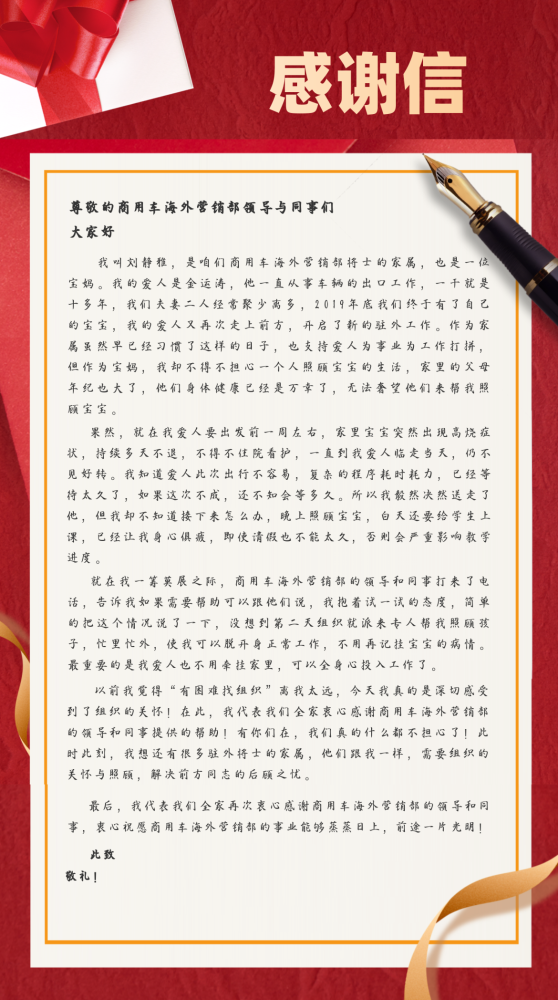 感谢信
尊敬的商用车海外营销部领导与同事们
大家好
我叫刘静雅，是咱们商用车海外营销部将士的家属，也是一位
宝妈。我的爱人是金运涛，他一直从事车辆的出口工作，一干就是
十多年，我们夫妻二人经常聚少离多，2019年底我们终于有了自己
的宝宝，我的爱人又再次走上前方，开启了新的驻外工作。作为家
属虽然早已经习惯了这样的日子，也支持爱人为事业为工作打拼，
但作为宝妈，我却不得不担心一个人照顾宝宝的生活，家里的父母
年纪也大了，他们身体健康已经是万幸了，无法奢望他们来帮我照
顾宝宝。
果然，就在我爱人要出发前一周左右，家里宝宝突然出现高烧症
状，持续多天不退，不得不住院看护，一直到我爱人临走当天，仍不
见好转。我知道爱人此次出行不容易，复杂的程序耗时耗力，已经等
待太久了，如果这次不成，还不知会等多久。所以我毅然决然送走了
他，但我却不知道接下来怎么办，晚上照顾宝宝，白天还要给学生上
课，已经让我身心俱疲，即使请假也不能太久，否则会严重影响教学
进度。
就在我一筹莫展之际，商用车海外营销部的领导和同事打来了电
话，告诉我如果需要帮助可以跟他们说，我抱着试一试的态度，简单
的把这个情况说了一下，没想到第二天组织就派来专人帮我照顾孩
子，忙里忙外，使我可以脱开身正常工作，不用再记挂宝宝的病情。
最重要的是我爱人也不用牵挂家里，可以全身心投入工作了。
以前我觉得“有困难找组织”离我太远，今天我真的是深切感受
到了组织的关怀！在此，我代表我们全家衷心感谢商用车海外营销部
的领导和同事提供的帮助！有你们在，我们真的什么都不担心了！此
时此刻，我想还有很多驻外将士的家属，他们跟我一样，需要组织的
关怀与照顾，解决前方同志的后顾之忧。
最后，我代表我们全家再次衷心感谢商用车海外营销部的领导和同
事，衷心祝愿商用车海外营销部的事业能够蒸蒸日上，前途一片光明！
此致
敬礼！